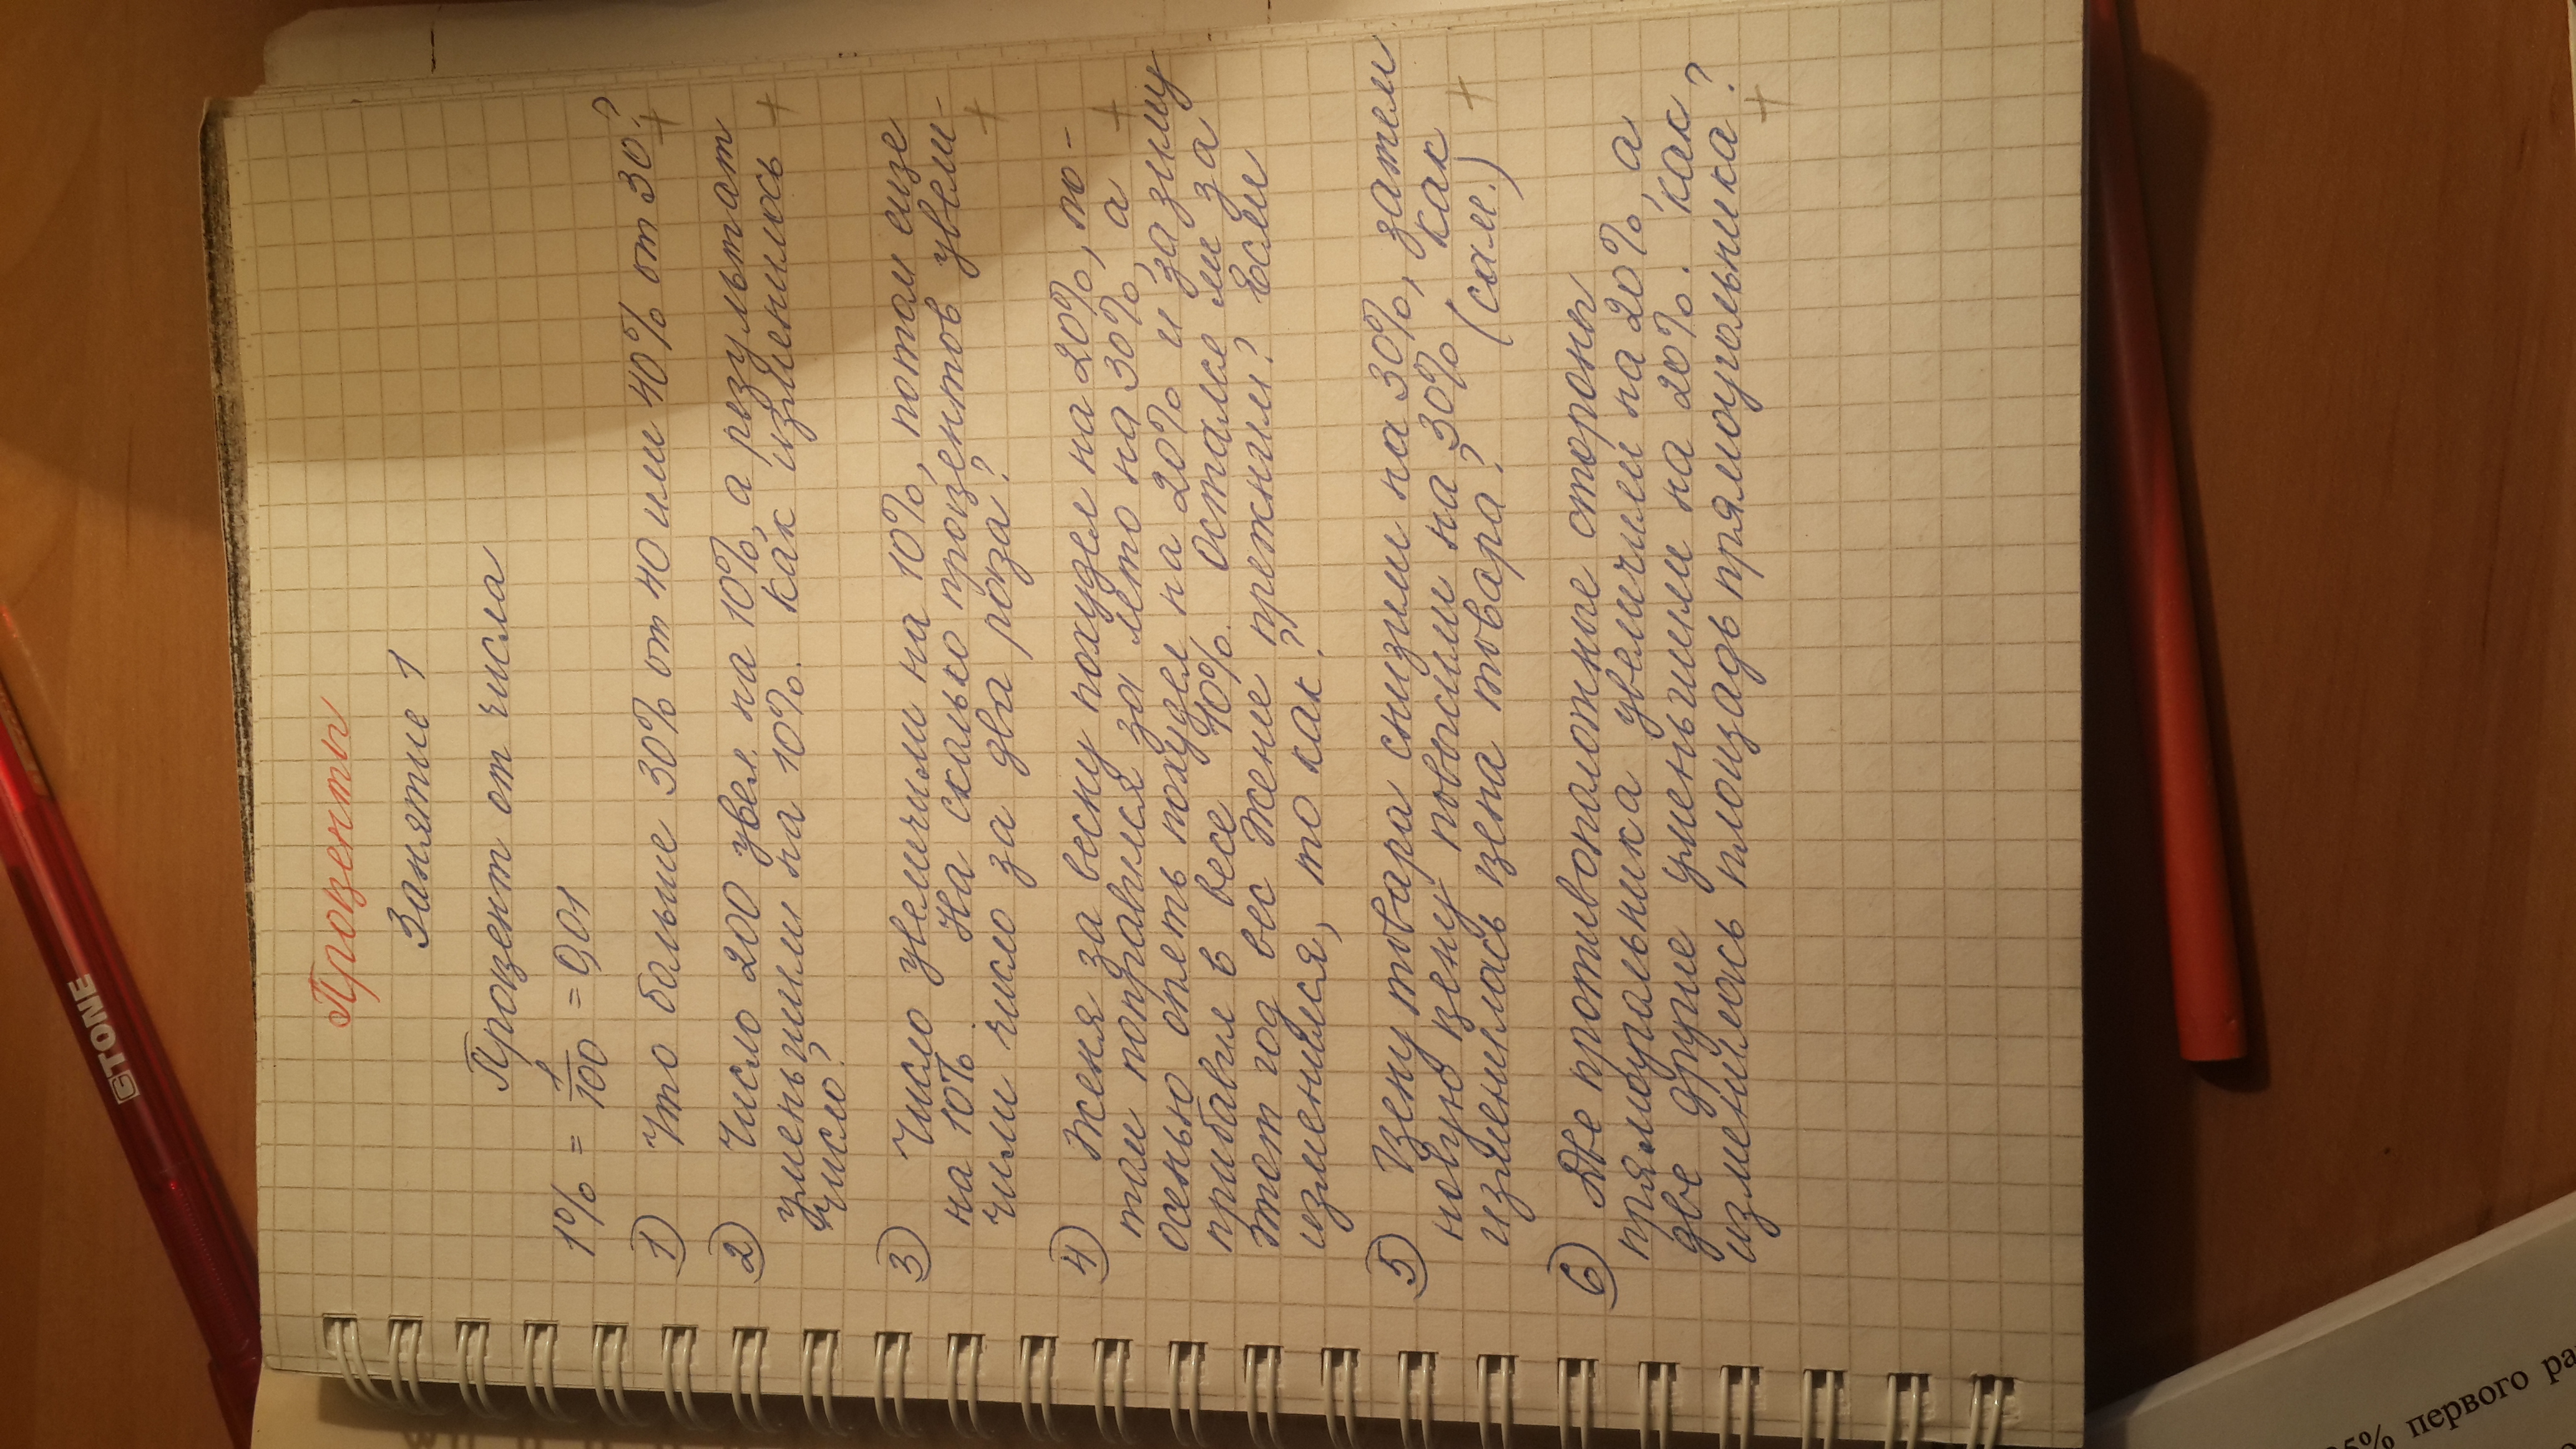 Проценты
Занятие 1
Процент от числа
1% = 1/100 = 0,01
① Что больше 30% от 40 или 40% от 30? +
② Число 200 увел на 10%, а результат +
уменьшили на 10%. Как изменилось
число?
③ Число увеличили на 10%, потом еще
на 10%. На сколько процентов увели- +
чили число за два раза?
④ Женя за весну похудел на 20%, по-
том поправился за лето на 30%, а +
осенью опять похудел на 20% и за зиму
прибавил в весе 10%. Остался ли за
этот год вес Жене прежним? Если
изменился, то как?
⑤ Цену товара снизили на 30%, затем
новую цену повысили на 30%. Как +
изменилась цена товара? (сам.)
⑥ Две противоположные стороны
прямоугольника увеличили на 20%, а
две другие уменьшили на 20%. Как
изменилась площадь прямоугольника? +
STONE
25% первого ра